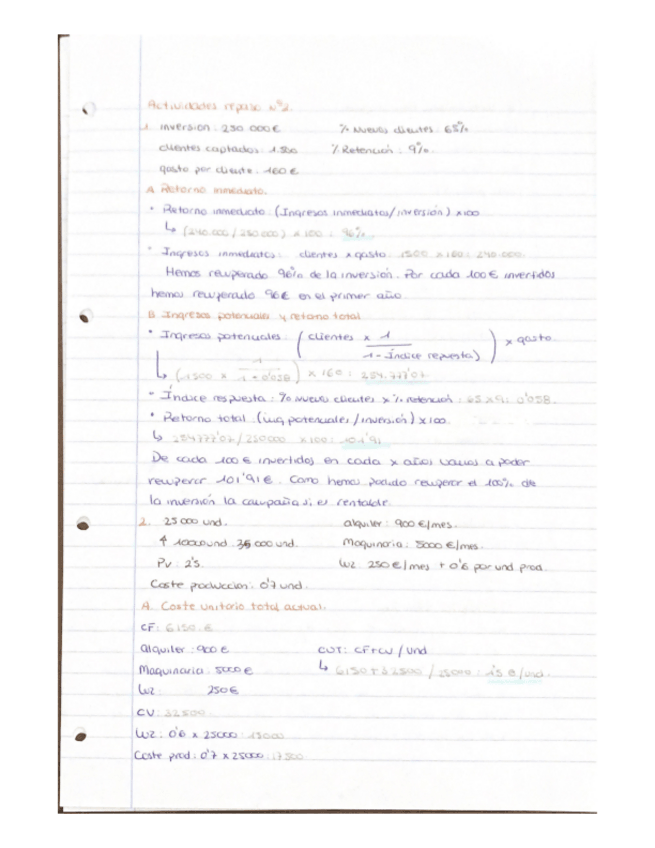 Actividades repaso Nº2.
1. inversión: 250 000 € % Nuevos clientes: 65%
clientes captados: 1.500 % Retención: 9%.
gasto por cliente: 160 €
A Retorno inmediato.
• Retorno inmediato: (Ingresos inmediatos / inversión) x 100
↳ (240.000 / 250.000) x 100: 96%
• Ingresos inmediatos: clientes x gasto: 1500 x 160: 240.000.
Hemos recuperado 96% de la inversión. Por cada 100 € invertidos
hemos recuperado 96 € en el primer año.
B Ingresos potenciales y retorno total
• Ingresos potenciales: ( clientes x 1 / 1 - Índice repuesta) ) x gasto.
↳ (1500 x 1 / 1 - 0'058 ) x 160: 254.777'07
• Índice respuesta: % nuevos clientes x % retención: 65 x 9: 0'058.
• Retorno total (ing potenciales / inversión) x 100.
↳ 254777'07 / 250000 x 100: 101'91
De cada 100 € invertidos en cada x años vamos a poder
recuperar 101'91 €. Como hemos podido recuperar el 100% de
la inversión la campaña si es rentable.
2. 25 000 und. alquiler: 900 €/mes.
↑ 10000 und. 35 000 und. Maquinaria: 5000 €/mes.
PV: 2'5. luz 250 €/mes + 0'6 por und prod.
Coste producción: 0'7 und.
A. Coste unitario total actual.
CF: 6150 €
alquiler: 900 € CUT: CF+CV / Und
Maquinaria: 5000 € ↳ 6150 + 32500 / 25000: 1'5 €/und.
luz: 250 €
CV: 32500
luz: 0'6 x 25000: 15000
Coste prod: 0'7 x 25000: 17500